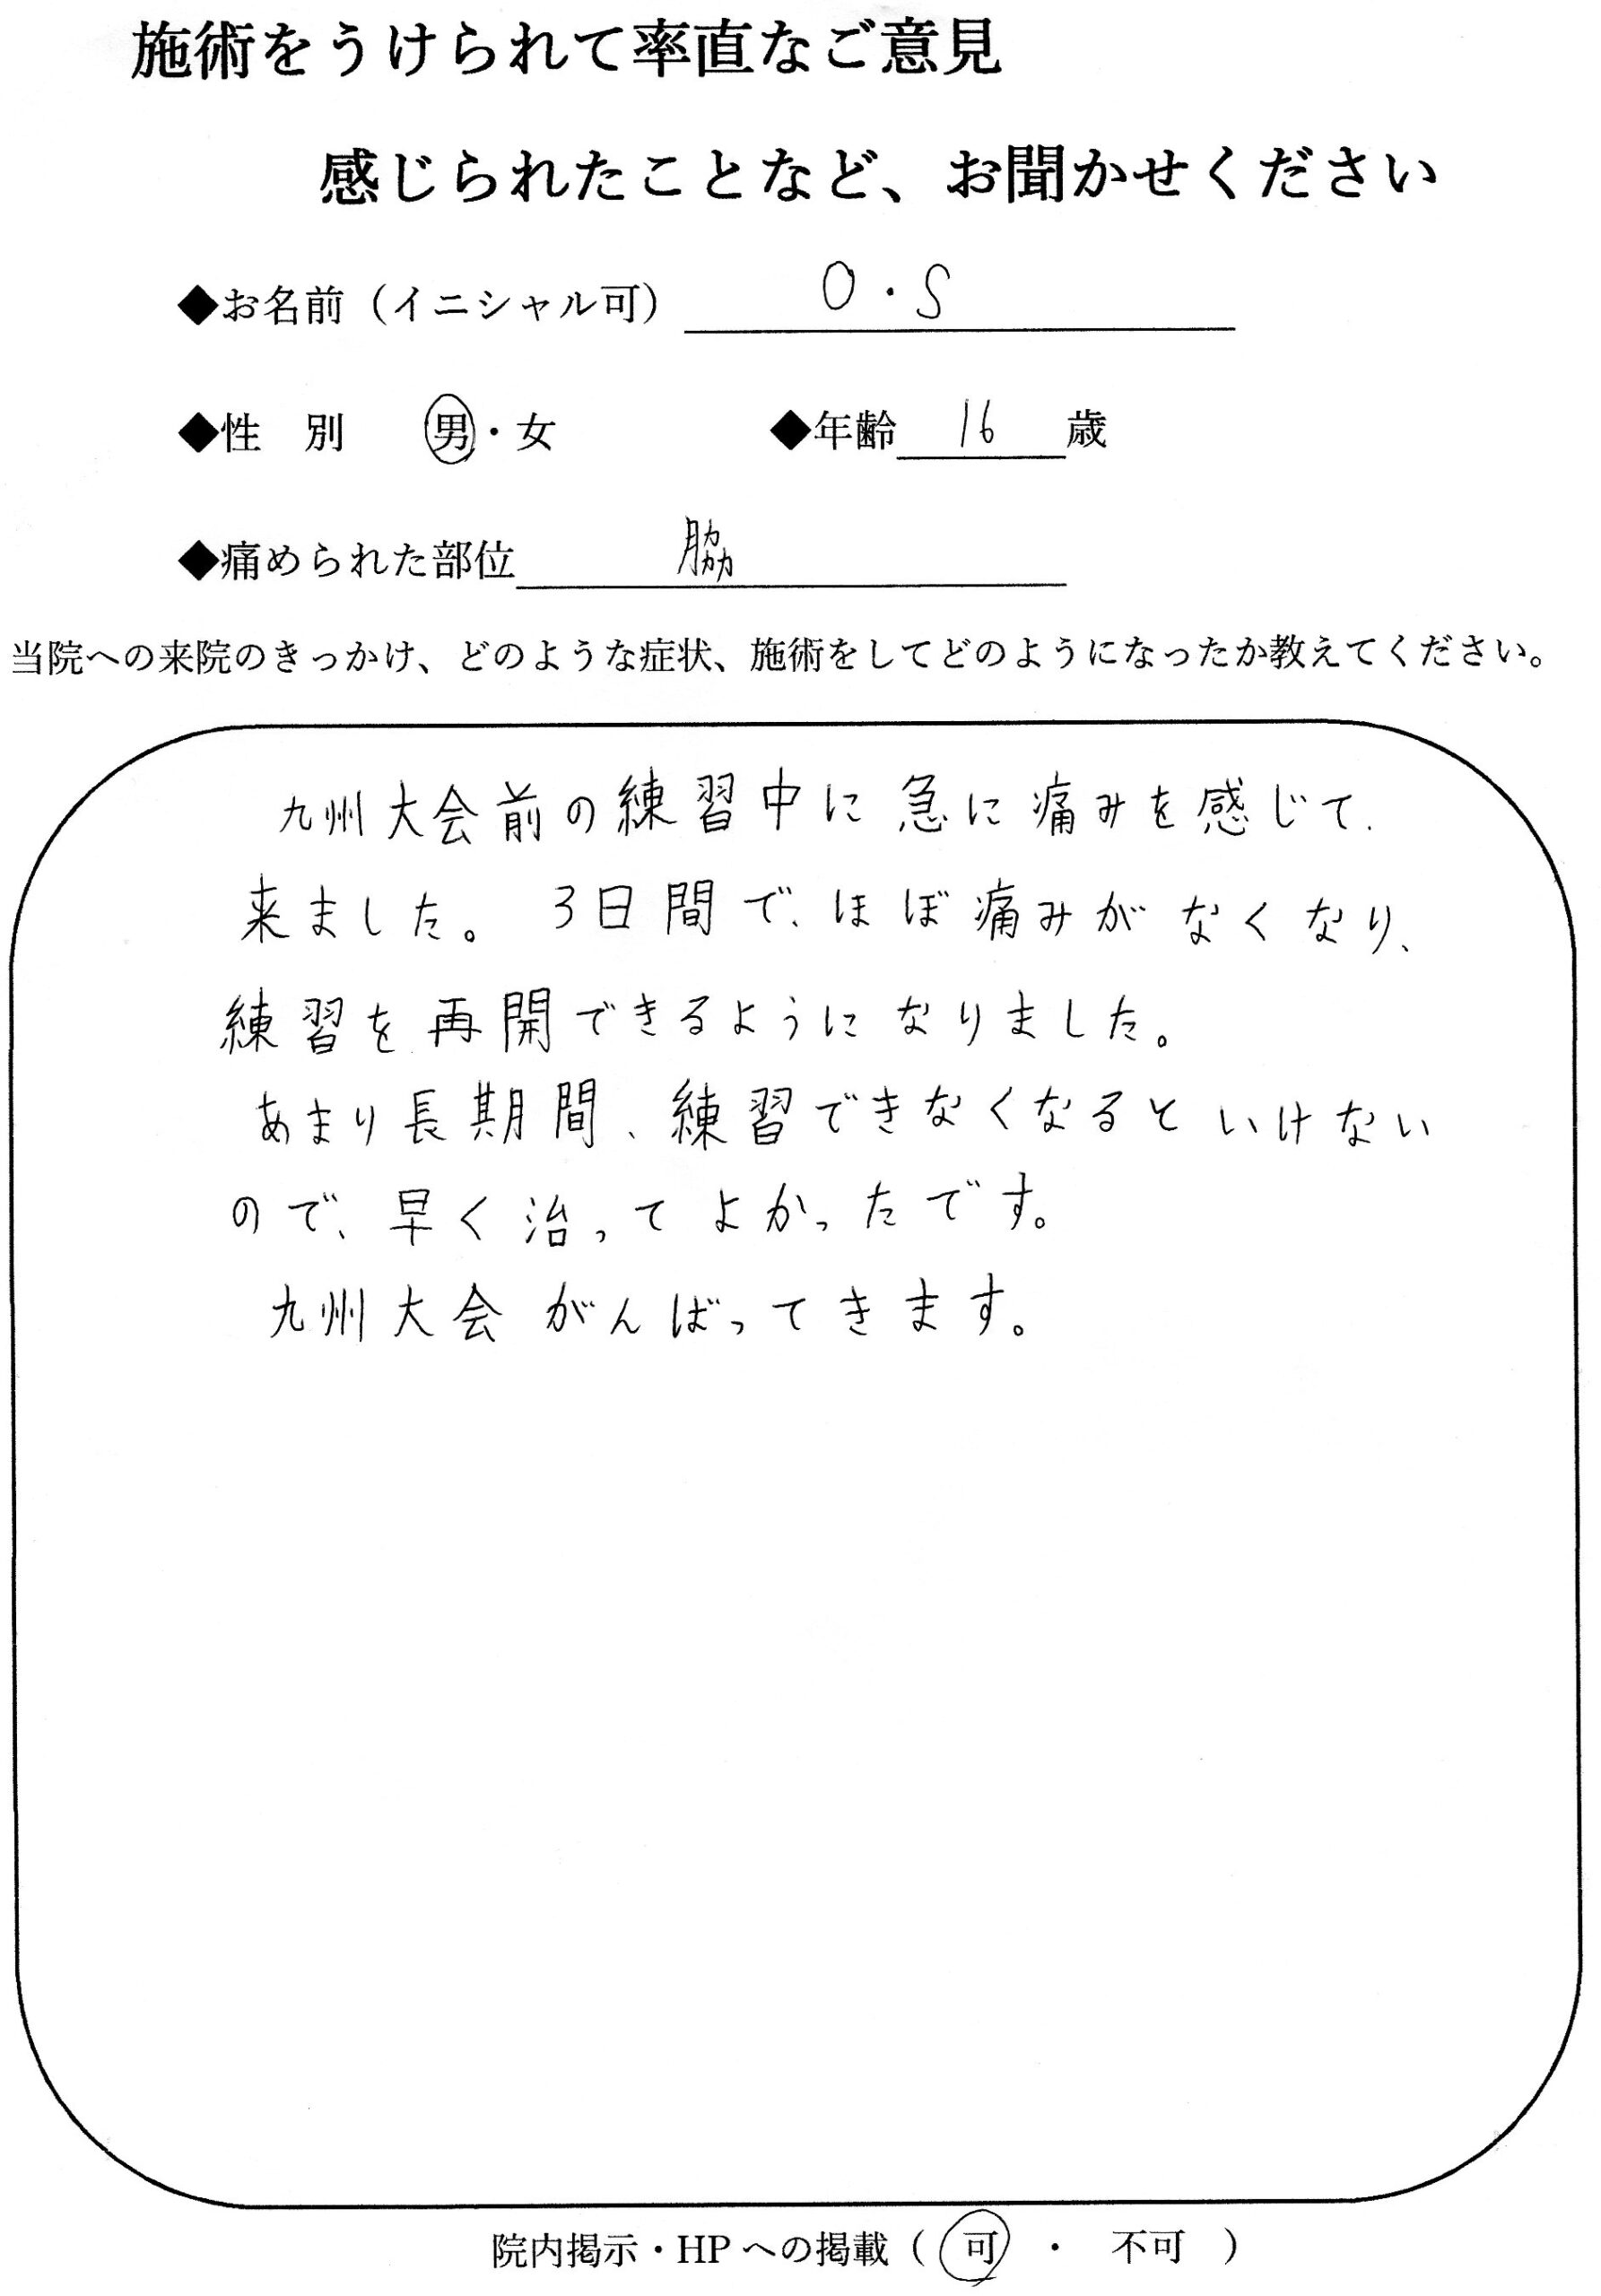 施術をうけられて率直なご意見
感じられたことなど、お聞かせください
◆お名前（イニシャル可） O・S
◆性 別 男・女 ◆年齢 16 歳
◆痛められた部位 脇
当院への来院のきっかけ、どのような症状、施術をしてどのようになったか教えてください。
九州大会前の練習中に急に痛みを感じて、
来ました。3日間で、ほぼ痛みがなくなり、
練習を再開できるようになりました。
あまり長期間、練習できなくなるといけない
ので、早く治ってよかったです。
九州大会がんばってきます。
院内掲示・HPへの掲載（ 可 ・ 不可 ）